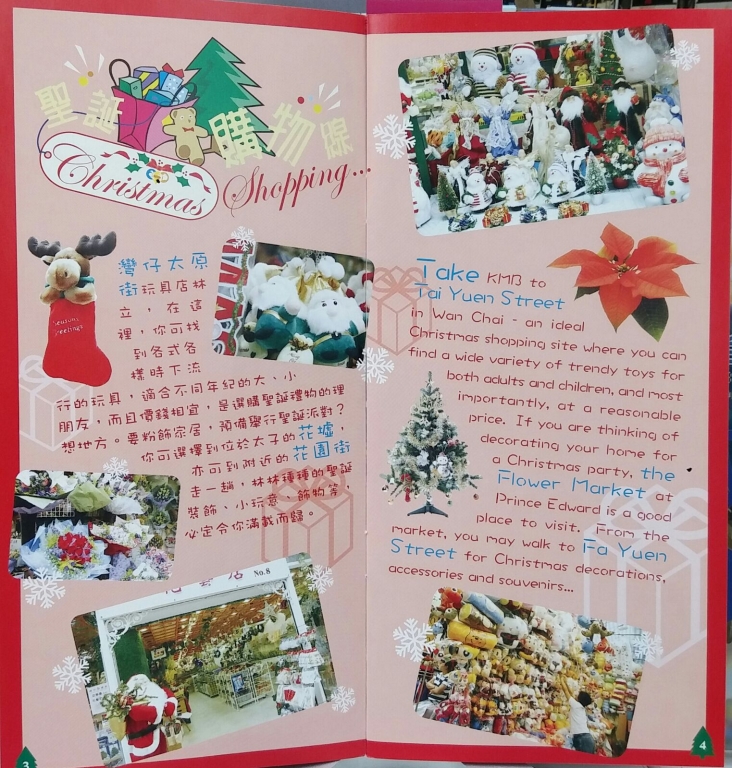 聖誕
購物線
Christmas
Shopping...
Season's
Greetings
灣仔太原
街玩具店林
立，在這
裡，你可找
到各式各
樣時下流
行的玩具，適合不同年紀的大、小
朋友，而且價錢相宜，是選購聖誕禮物的理
想地方。要粉飾家居，預備舉行聖誕派對？
你可選擇到位於太子的花墟，
亦可到附近的花園街
走一趟，林林種種的聖誕
裝飾、小玩意、飾物等
必定令你滿載而歸。
No.8
3
Take KMB to
Tai Yuen Street
in Wan Chai - an ideal
Christmas shopping site where you can
find a wide variety of trendy toys for
both adults and children, and most
importantly, at a reasonable
price. If you are thinking of
decorating your home for
a Christmas party, the
Flower Market at
Prince Edward is a good
place to visit. From the
market, you may walk to Fa Yuen
Street for Christmas decorations,
accessories and souvenirs...
4